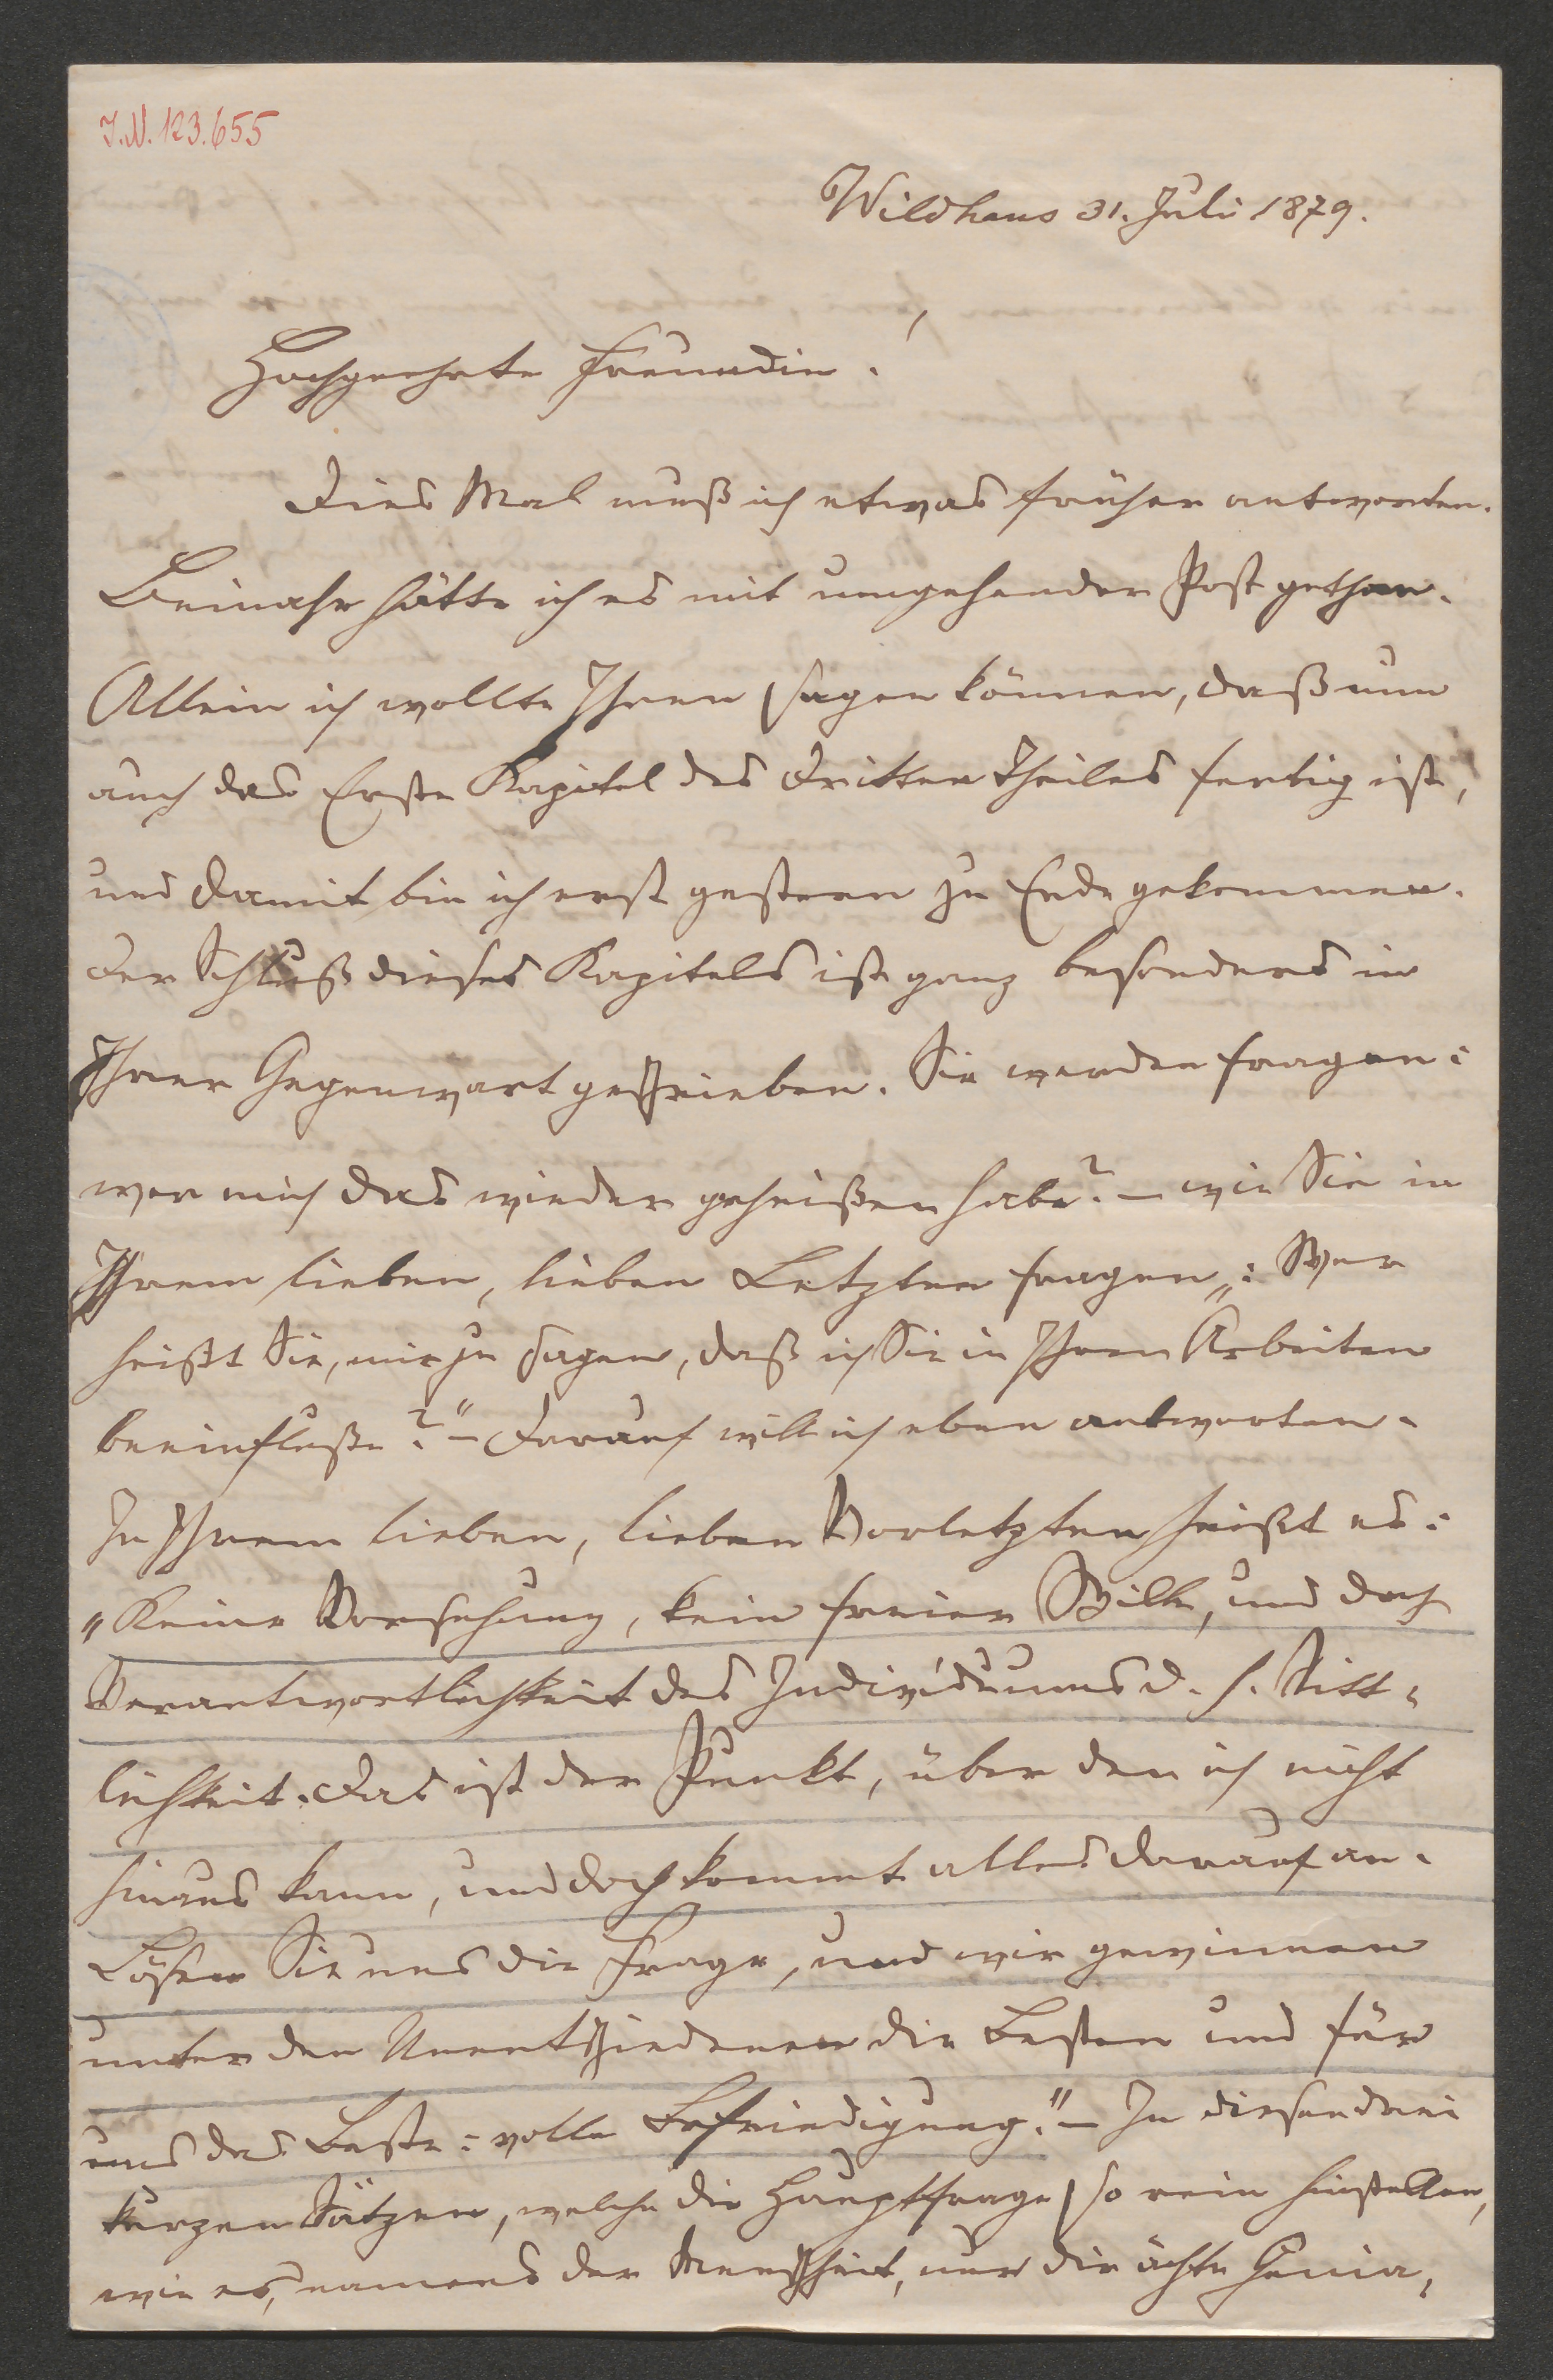 I.N. 123.655
Wildhaus 31. Juli 1879.
Hochgeehrte Freundin!
Dies Mal muß ich etwas früher antworten.
Beinahe hätte ich es mit umgehender Post gethan.
Allein ich wollte Ihnen sagen können, daß nun
auch das Erste Kapitel des Dritten Theiles fertig ist,
und damit bin ich erst gestern zu Ende gekommen.
Der Schluß dieses Kapitels ist ganz besonders in
Ihrer Gegenwart geschrieben. Sie werden fragen:
wer mich das wieder geheißen habe? – wie Sie in
Ihrem lieben, lieben Letzten fragen: „Wer
heißt Sie, mir zu sagen, daß ich Sie in Ihren Arbeiten
beeinfluße?“ – Darauf will ich eben antworten.
In Ihrem lieben, lieben Vorletzten heißt es:
„Keine Vorsehung, kein freier Wille, und doch
Verantwortlichkeit des Individuums d. h. Sitt-
lichkeit. Das ist der Punkt, über den ich nicht
hinaus kann, und doch kommt alles darauf an.
Lösen Sie uns die Frage, und wir gewinnen
unter den Unentschiedenen die Besten und für
uns das Beste: volle Befriedigung.“ – In diesen drei
kurzen Sätzen, welche die Hauptfrage so rein hinstellen,
wie es, namens der Menschheit, nur die ächte Genia-